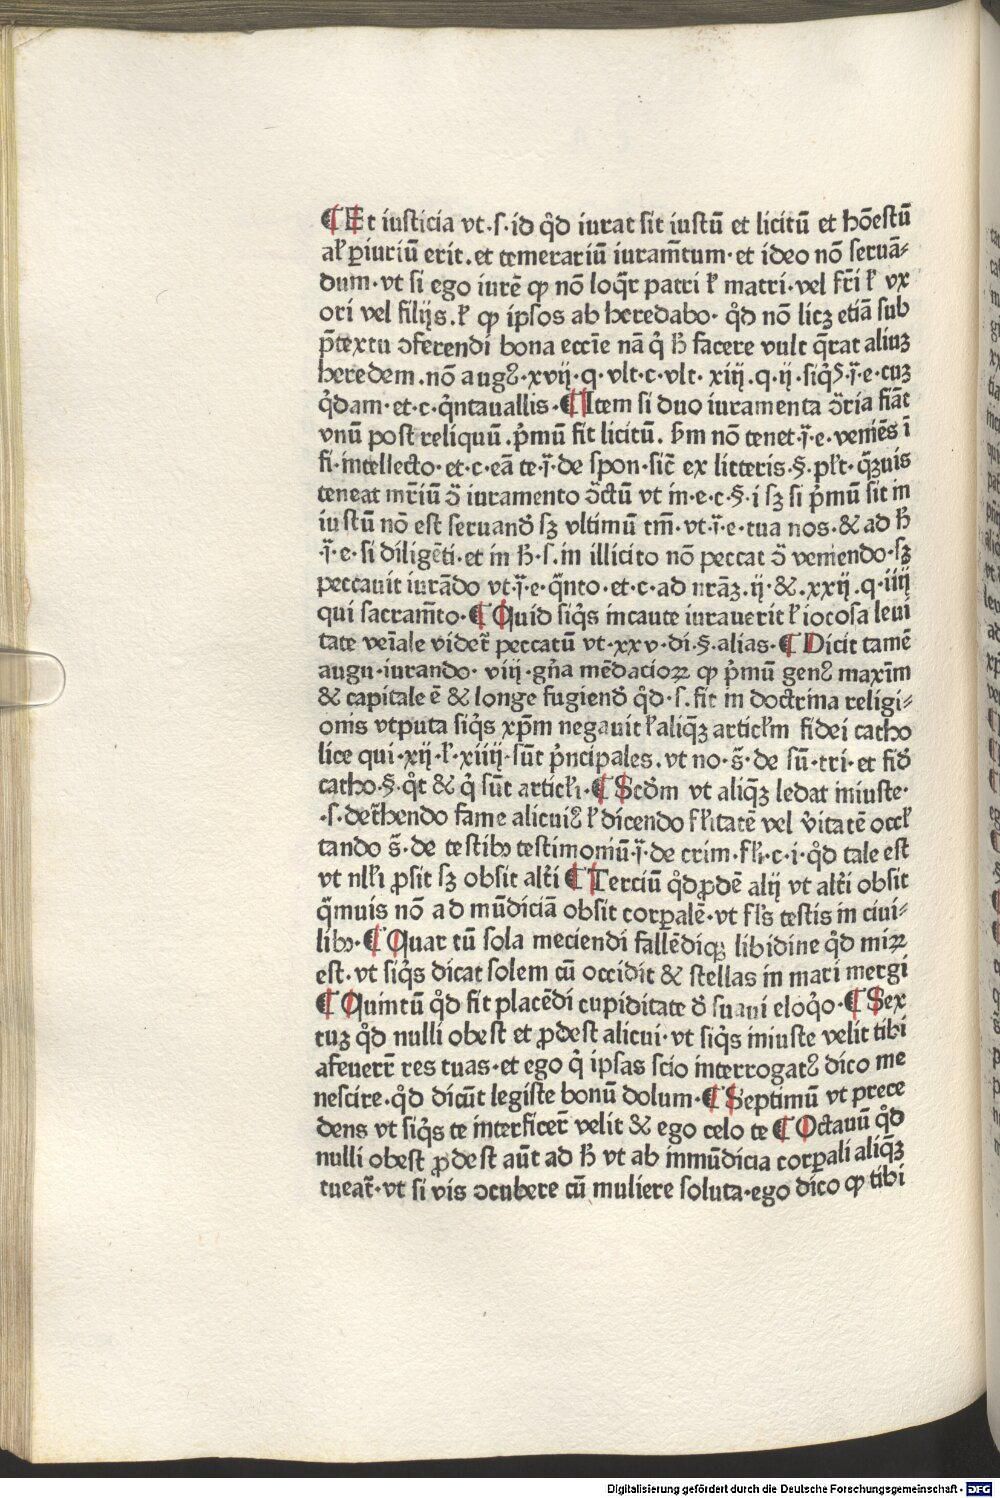 ¶ Et iusticia vt·ſ·id qd̄ iurat sit iustū et licitū et hōestū
al' ꝑiuriū erit. et temerariū iuram̄tum·et ideo nō seruā⸗
dum·vt si ego iurē ꝙ nō loqr̄ patri ł matri·vel fr̄i ł vx
ori vel filijs.ł ꝙ ipsos ab heredabo· qd̄ nō licꝫ etiā sub
p̄textu ɔferendi bona eccīe nā q̇ ħ facere vult q̄rat aliuꝫ
heredem.nō augꝰ·xvij·q·vlt·c·vlt· xiij.q·ij·siq̇s·j̄·e·cuꝫ
q̇dam·et·c·q̇ntauallis·¶ Item si duo iuramenta ɔ̄ria fiāt
vnū post reliquū.ṗmū fit licitū. ẜm nō tenet·j̄·e·veniēs ī
fi·intellecto·et·c·eā te·j̄·de spon·sic̄ ex litteris·§·pl't·q̄ꝫuis
teneat mr̄iū ɔ̄ iuramento ɔ̄ctū vt in·e·c·§·i sꝫ si ṗmū sit in
iustū nō est seruand̄ sꝫ vltimū tm̄·vt·j̄·e·tua nos·& ad ħ
·j̄·e·si diligēti·et in ħ·ſ·in illicito nō peccat ɔ̄ veniendo·sꝫ
peccauit iurādo vt·j̄·e·q̄nto·et·c·ad nrāꝫ·ij·&·xxij·q·iiij
qui sacram̄to·¶ Quid siq̇s incaute iurauerit ł iocosa leui
tate venīale videt̄ peccatū vt·xxv·di·§·alias·¶ Dicit tamē
augu·iurando· viij·gn̄a mēdacioꝝ ꝙ ṗmū genꝰ maxīm
& capitale ē & longe fugiend̄ qd̄·ſ·fit in doctrina religi⸗
onis vtputa siq̇s xp̄m negauit ł aliq̄ꝫ articl'm fidei catho
lice qui·xij·ł·xiiij·sūt ṗncipales.vt no·s̄·de sū·tri·et fid̄
catho·§·q̊t & q̇ sūt articl'i·¶ Scd̄m vt aliq̄ꝫ ledat iniuste·
·ſ·det̄hendo fame alicuiꝰ ł dicendo fl'itatē vel v̇itatē occl'
tando s̄·de testibꝫ testimoniū·j̄·de crim·fl'i·c·i·qd̄ tale est
vt nll'i ꝓsit sꝫ obsit alt̄i ¶ Terciū qd̄ ꝓdē alij vt alt̄i obsit
q̄muis nō ad mūdiciā obsit corꝑalē·vt fl's testis in ciui⸗
libꝫ·¶ Quartū sola meciendi fallēdiqꝫ libidine qd̄ miꝝ
est·vt siq̇s dicat solem cū occidit & stellas in mari mergi
¶ Quintū qd̄ fit placēdi cupiditate d̄ suaui eloq̇o·¶ Sex
tuꝫ qd̄ nulli obest et ꝓdest alicui·vt siq̇s iniuste velit tibi
afeuerr̄ res tuas·et ego q̇ ipsas scio interrogatꝰ dico me
nescire·qd̄ dicūt legiste bonū dolum·¶ Septimū vt prece
dens vt siq̇s te interficer̄ velit & ego celo te ¶ Octauū qd̄
nulli obest ꝓdest aūt ad ħ vt ab inmūdicia corꝑali aliq̄ꝫ
tueat̄·vt si vis ɔcubere cū muliere soluta·ego dico ꝙ tibi
Digitalisierung gefördert durch die Deutsche Forschungsgemeinschaft - DFG